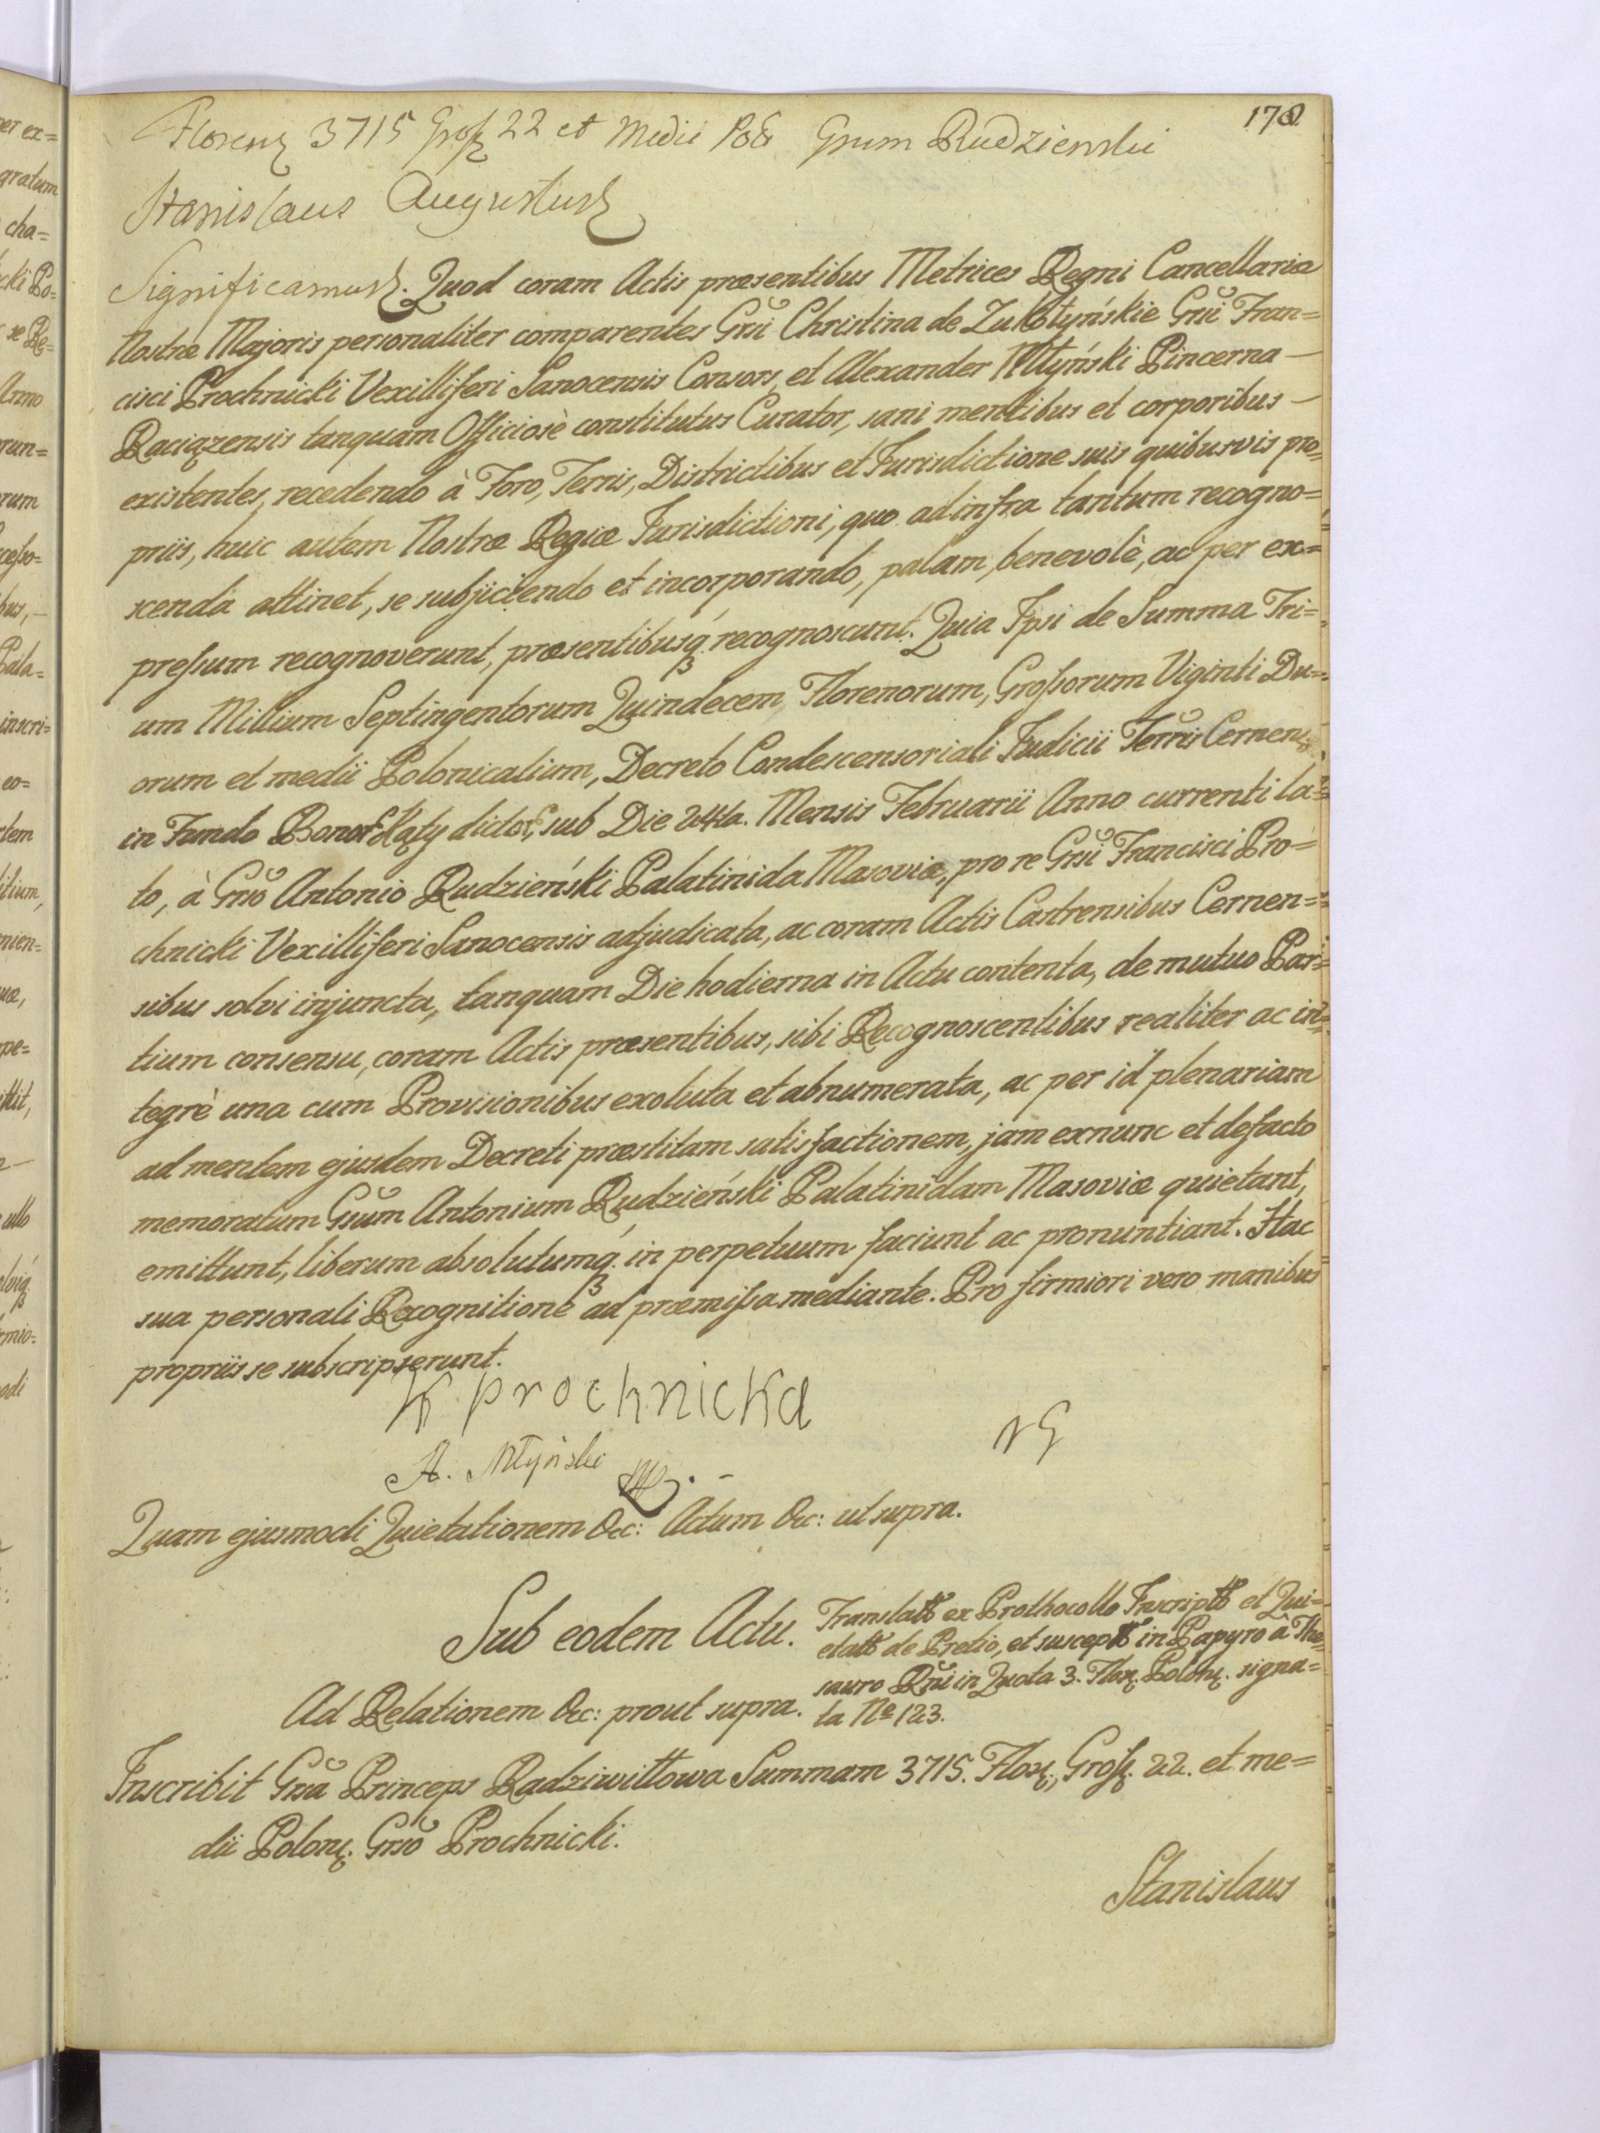 178
Florenʒ 3715 Groſʒ 22 et Medii Gnum Rudzienski
Stanislaus Augustus
Significamus. Quod coram Actis præsentibus Metrices Regni Cancellariæ
Nostræ Majoris personaliter comparentes Gnsi Christina de Zukotyńskie Gnsi Fran=
cisci Prochnicki Vexilliferi Sanocensis Consors, et Alexander Młyński Pincerna —
Raciązensis tanquam Officiosè constitutus Curator, sani mentibus et corporibus —
existentes, recedendo à Foro, Terris, Districtibus et Jurisdictione suis quibusvis pro=
priis, huic autem Nostræ Regiæ Jurisdictioni, quo ad infra tantum recogno=
scenda attinet, se subjiciendo et incorporando, palam, benevolè, ac per ex=
preſsum recognoverunt, præsentibusq́ʒ recognoscunt. Quia Ipsi de Summa Tri=
um Millium Septingentorum Quindecem Florenorum, Groſsorum Viginti Du=
orum et medii Polonicalium, Decreto Condescensoriali Judicii Terris Cernens
in Fundo Bonor Kąty dictor, sub Die 24ta. Mensis Februarii Anno currenti la=
to, à Gnso Antonio Rudzieński Palatinida Masoviæ, pro re Gnsi Francisci Pro=
chnicki Vexilliferi Sanocensis adjudicata, ac coram Actis Castrensibus Cernen=
sibus solvi injuncta, tanquam Die hodierna in Actu contenta, de mutuo Par=
tium consensu, coram Actis præsentibus, sibi Recognoscentibus realiter ac in=
tegrè una cum Provisionibus exoluta et abnumerata, ac per id plenariam
ad mentem ejusdem Decreti præstitam satisfactionem, jam exnunc et defacto
memoratum Gnsum Antonium Rudzieński Palatinidam Masoviæ quietant,
emittunt, liberum absolutumq́ʒ in perpetuum faciunt ac pronuntiant. Hac
sua personali Recognitione ad præmiſsa mediante. Pro firmiori vero manibus
propriis se subscripserunt.
K Prochnicka
A. Młyński
Quam ejusmodi Quietationem &c: Actum &c: ut supra.
Sub eodem Actu.
Translatt ex Prothocollo Inscriptt et Qui=
etatt de Pretio, et susceptt in Papyro â The=
sauro Rni in Quota 3. Flor. Polon. signa=
ta No 123.
Ad Relationem &c: prout supra.
Inscribit Gnsa Princeps Radziwiłłowa Summam 3715. Flor., Groſ. 22. et me=
dii Polon. Gnso Prochnicki.
Stanislaus